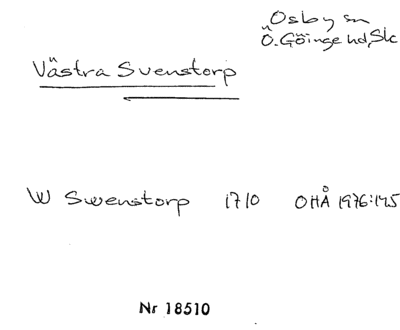 Osby sn
Ö. Göinge hd, Sk
Västra Svenstorp
W Swenstorp 1710 OHÅ 1976:145
Nr 18510